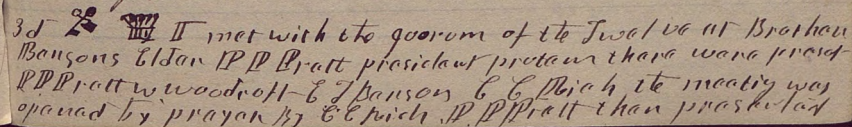 3d I met with the qoorom of the Twelve at Brothar
Bansons Eldar P P Pratt prasidant protam thara wara prasat
P P Pratt W Woodroff E T Banson C C Rich the meatig was
opanad by prayar By C C Rich P P Pratt than prasantad